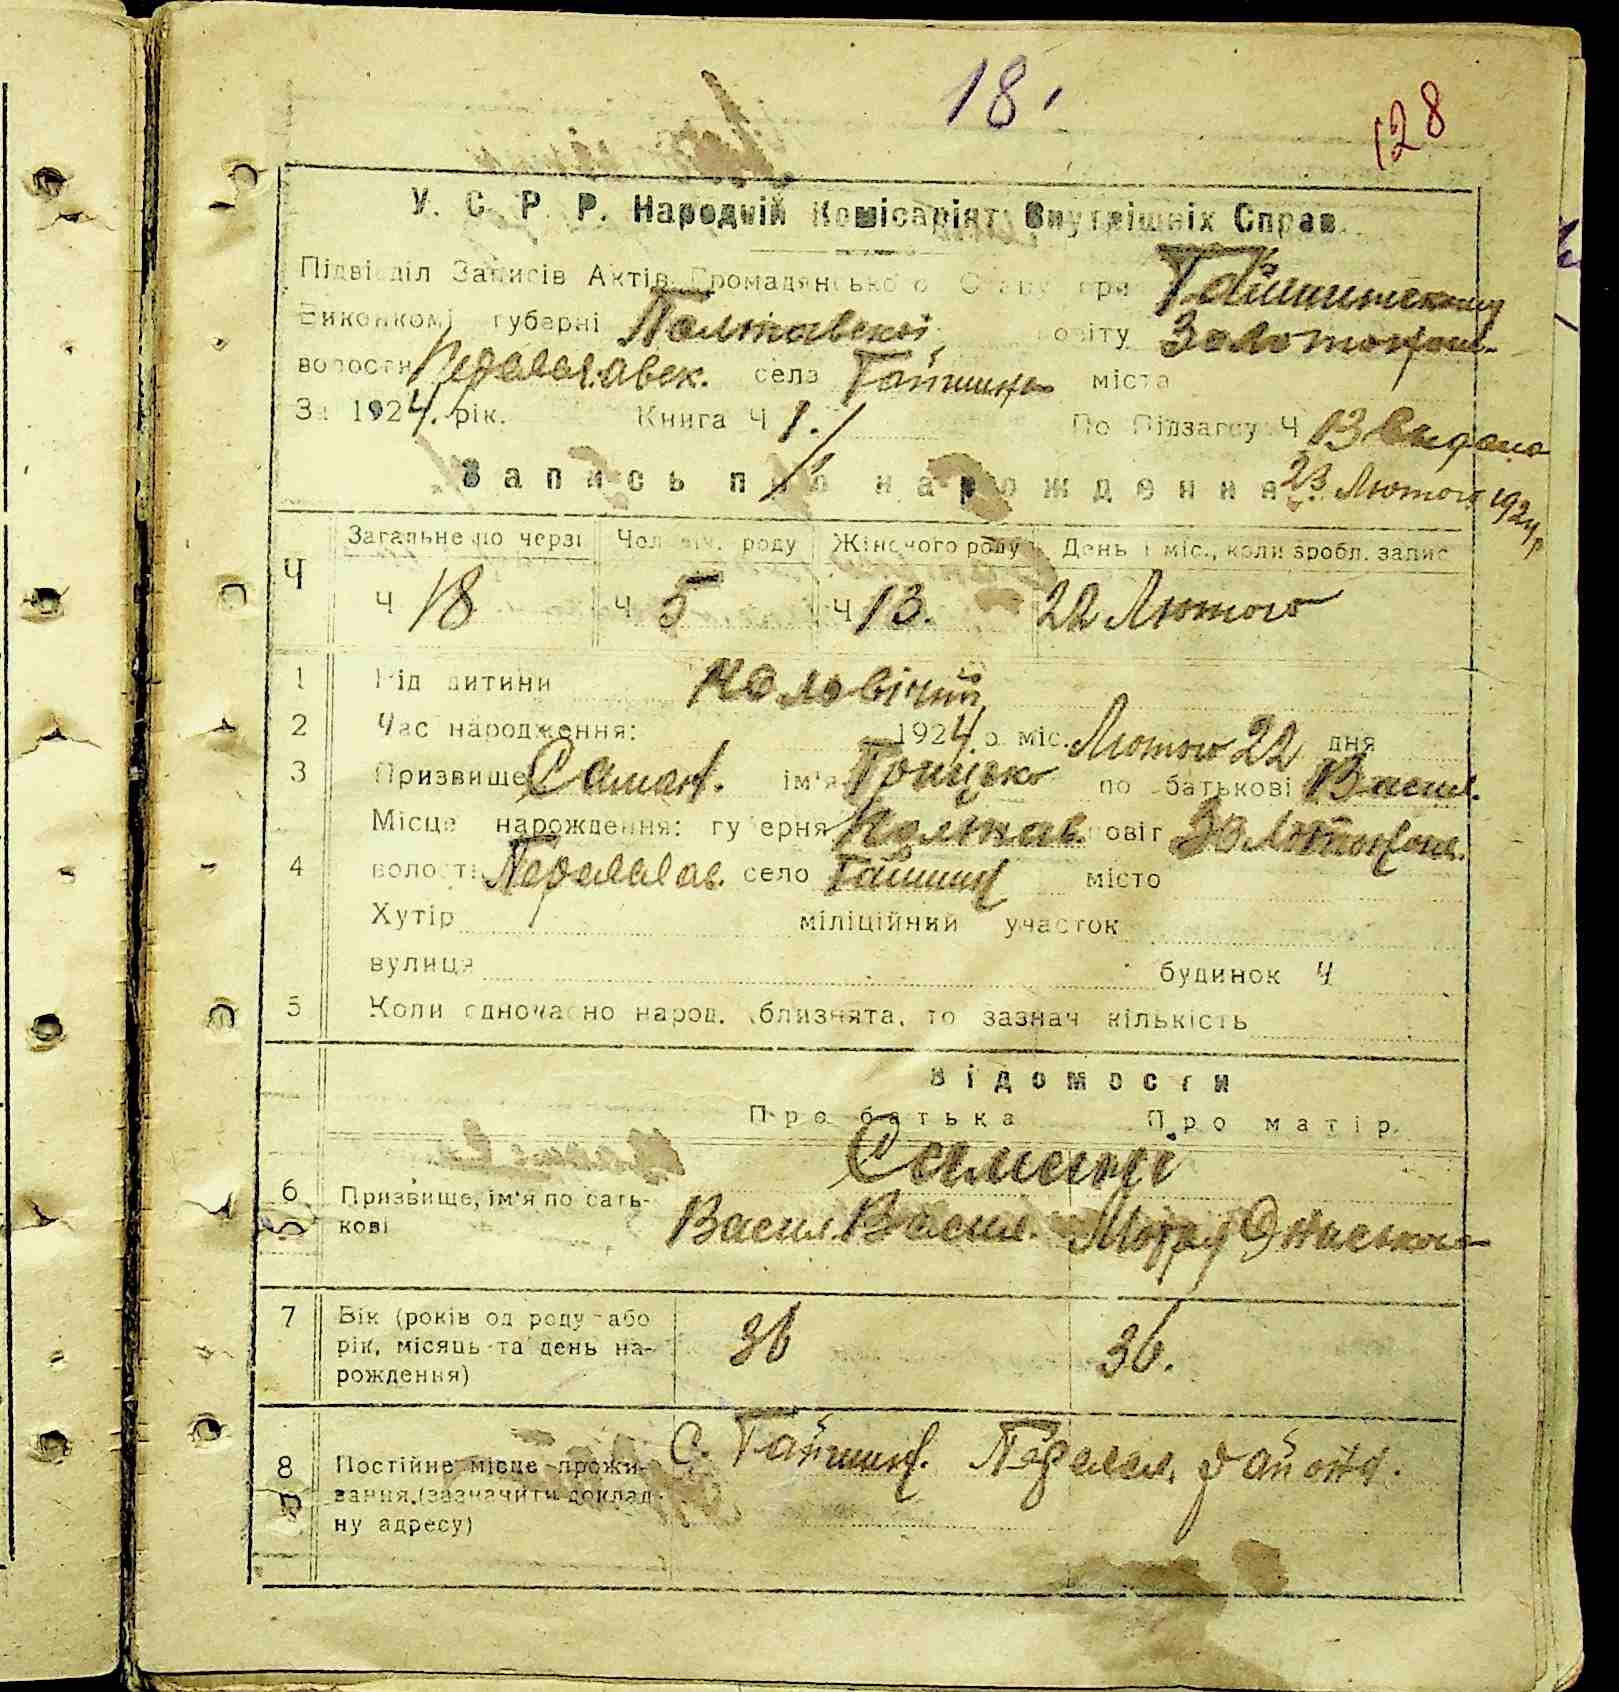 18.
128
У. С. Р. Р. Народній Комісаріят Внутрішніх Справ.
Підвідділ Записів Актів Громадянського Стану при Гайшинському
Виконкомі губерні Полтавської повіту Золотонош.
волости Переяславск. села Гайшин міста
За 1924. рік. Книга Ч 1. По Підзагсу Ч 13 Видано
Запись про нарождения 23 Лютого 1924 р
Ч Загальне по черзі Чоловіч. роду Жіночого роду День і міс., коли зробл. запис
Ч 18 Ч 5 Ч 13. 22 Лютого
1 Рід дитини Чоловічий
2 Час народження: 1924. р. міс. Лютого 22 дня
3 Призвище ім'я Грицько по батькові Васил.
Місце нарождення: губерня Полтав. повіт Золотонош.
4 волость Переяслав. село Гайшин місто
Хутір міліційний участок
вулиця будинок Ч
5 Коли одночасно народ. близнята, то зазнач кількість
Відомости
Про батька Про матір
6 Призвище, ім'я по бать-
кові Васил. Васил. Мотря
7 Вік (років од роду або
рік, місяць та день на-
рождення) 36 36.
8 Постійне місце прожи-
вання, (зазначити доклад-
ну адресу) С. Гайшин. Переясл. району.